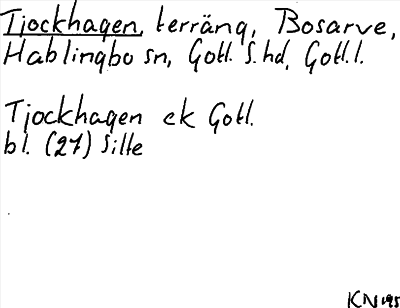 Tjockhagen, terräng, Bosarve,
Hablingbo sn, Gotl. S. hd, Gotl. l.
Tjockhagen ek Gotl.
bl. (27) Silte
KN 195